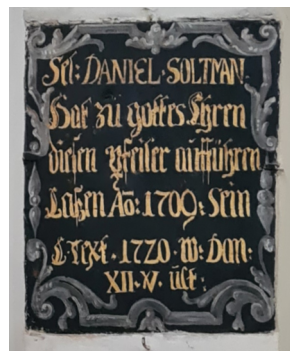 Sel: DANIEL · SOLTMAN
Hat zü gottes Ehren
diesen Pfeiler auffführen
Laßen Aō: 1709: Sein
1720 · Dom:
XII · V